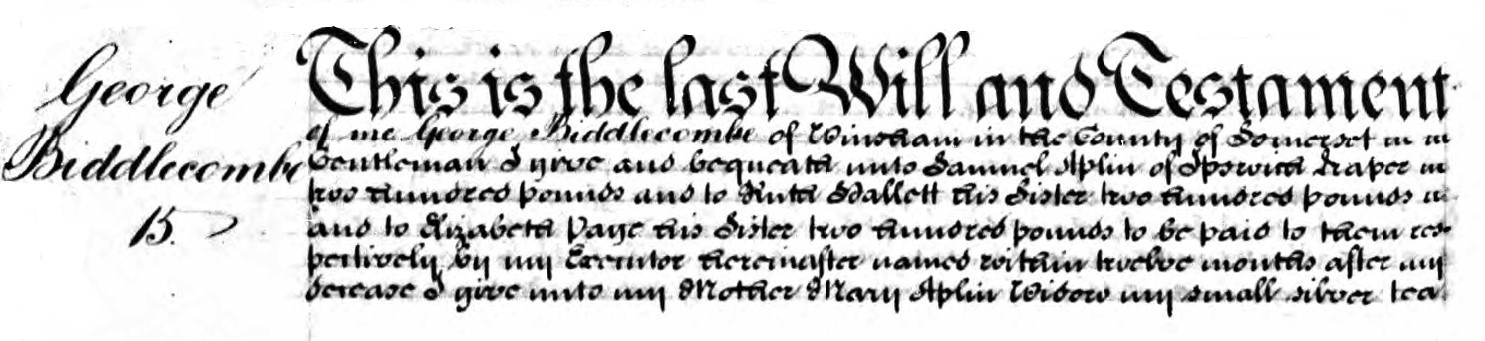 George
Biddlecombe
15.
This is the last Will and Testament
of me George Biddlecombe of Winsham in the County of Somerset
Gentleman I give and bequeath unto Samuel Aplin of Ipswich Draper
two hundred pounds and to Ruth Hallett his Sister two hundred pounds
and to Elizabeth Page his Sister two hundred pounds to be paid to them res
pectively by my Executor hereinafter named within twelve months after my
decease I give unto my Mother Mary Aplin Widow my small silver tea